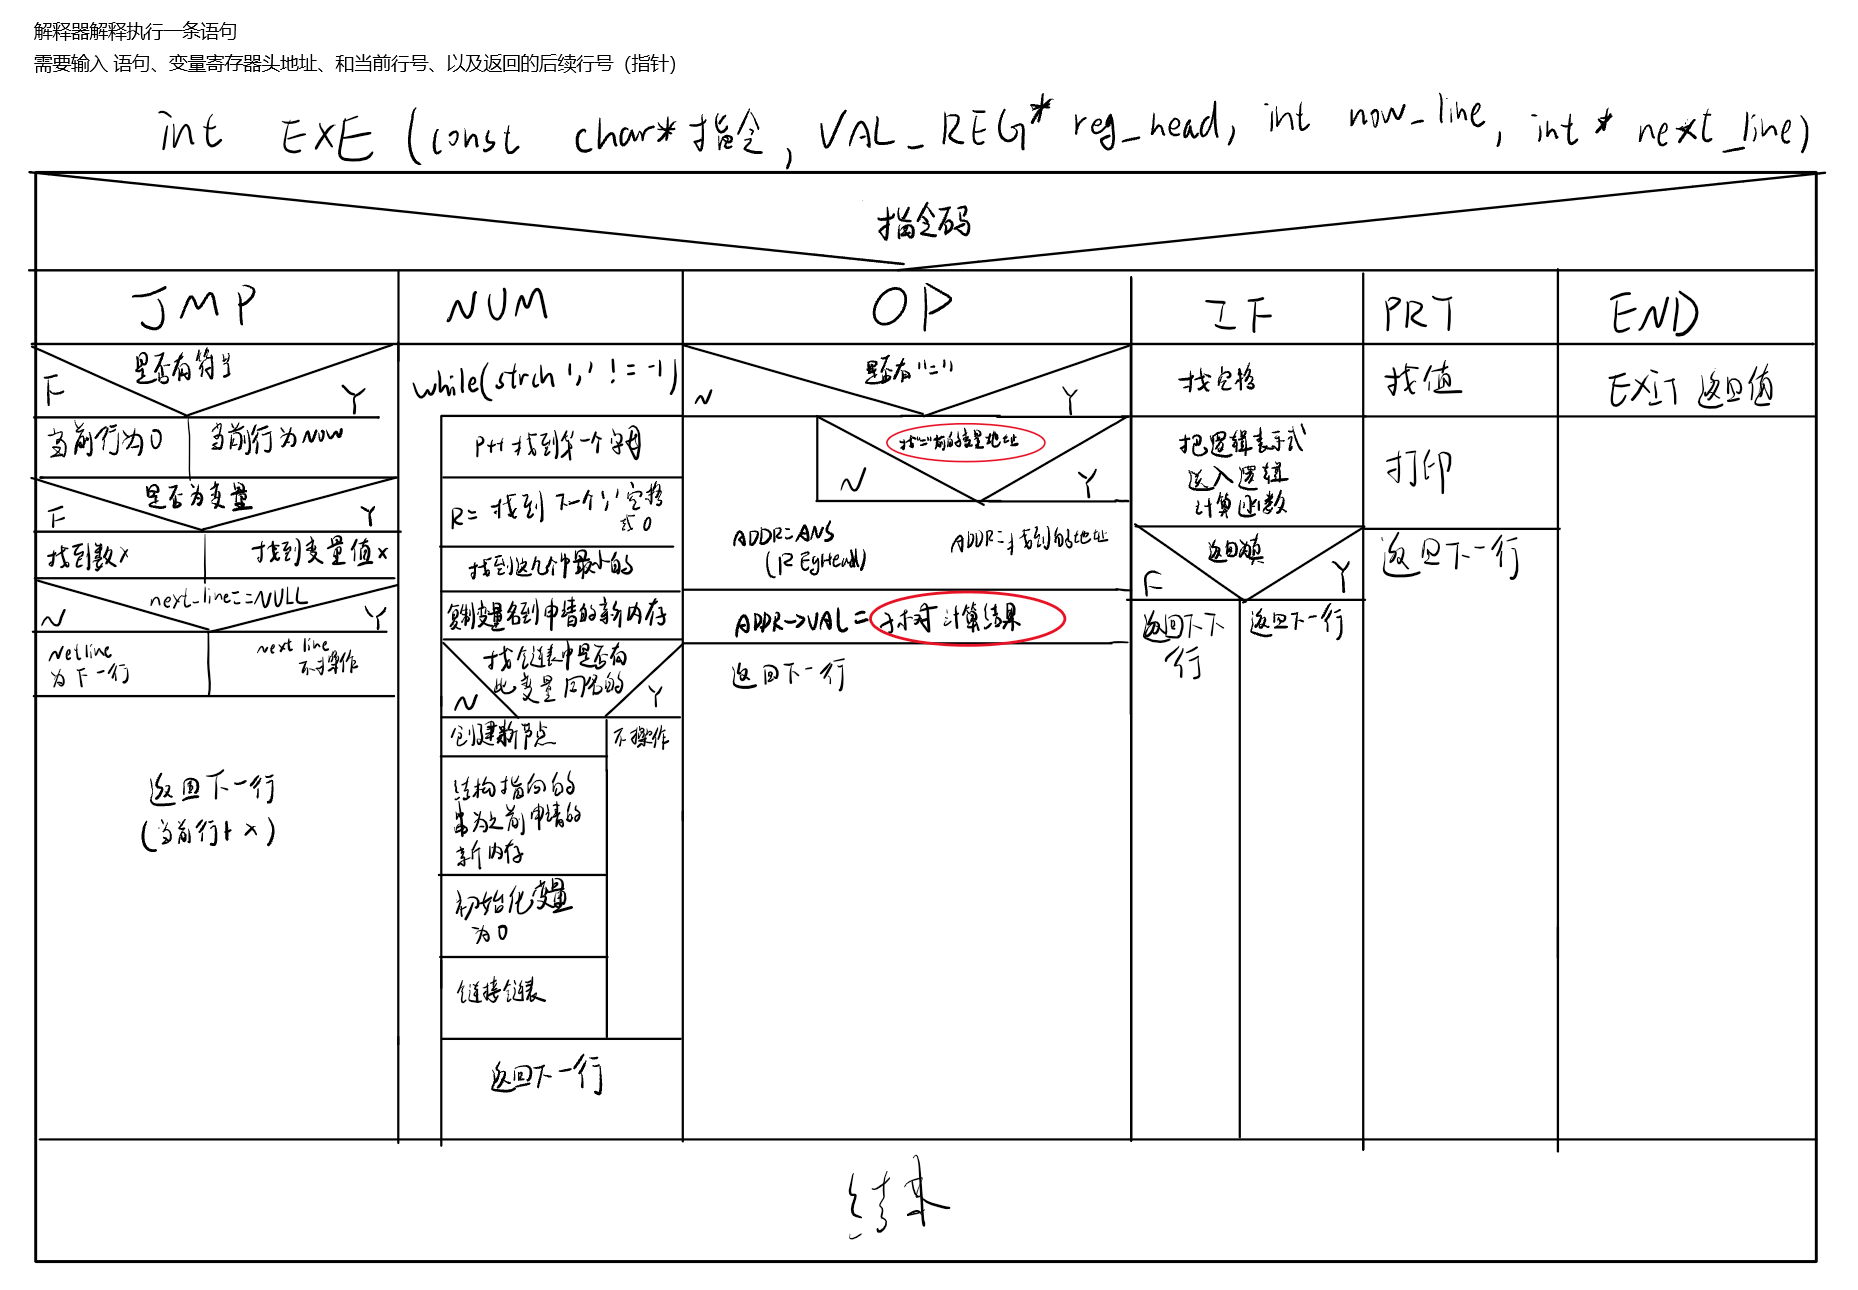 解释器解释执行一条语句
需要输入 语句、变量寄存器头地址、和当前行号、以及返回的后续行号（指针）
int EXE (const char* 指令, VAL_REG* reg_head, int now_line, int* next_line)
指令码
JMP
NUM
OP
IF
PRT
END
是否有符号
F
Y
当前行为0
当前行为now
是否为变量
F
Y
找到数x
找到变量值x
next_line==NULL
N
Y
Netline
为下一行
next line
不操作
返回下一行
(当前行+x)
while(strch ',' != -1)
P++ 找到第一个字母
R= 找到下一个',' 空格
或 0
找到这几个中最小的
复制变量名到申请的新内存
找链表中是否有
此变量同名的
N
Y
创建新节点
不操作
结构指向的
串为之前申请的
新内存
初始化变量
为0
链接链表
返回下一行
是否有'='
N
Y
找"="前的变量地址
N
Y
ADDR=ANS
(REgHead)
ADDR=找到的地址
ADDR->VAL=子树计算结果
返回下一行
找空格
把逻辑表示式
送入逻辑
计算函数
返回真
F
Y
返回下下
行
返回下一行
找值
打印
返回下一行
EXIT 返回值
结束